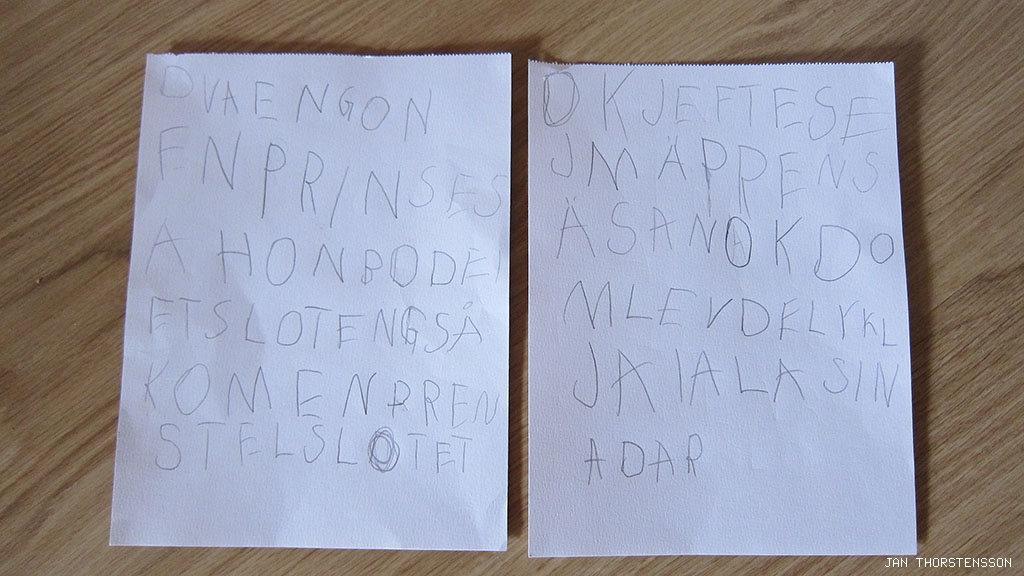 DVAENGON
ENPRINSES
AHONBODEI
ETSLOTENGSÅ
KOMENPREN
STELSLOTET
OKJEFTESE
JMÄPRENS
ÄSANOKDO
MLEVDELYKL
JAIALASIN
ADAR
JAN THORSTENSSON